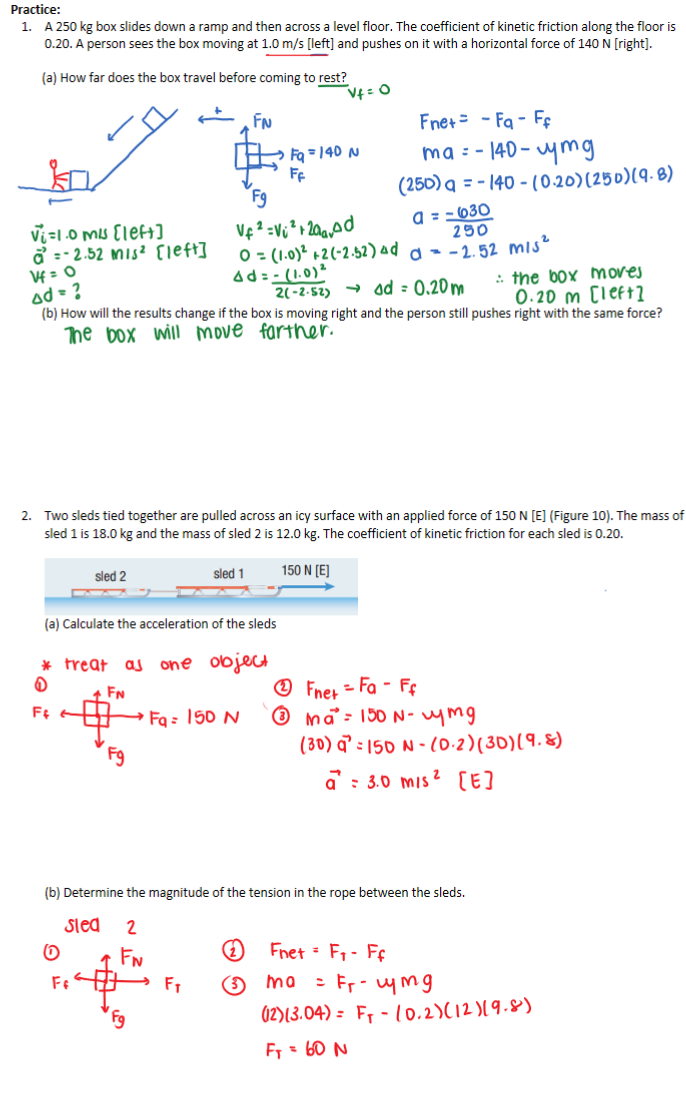 Practice:
1. A 250 kg box slides down a ramp and then across a level floor. The coefficient of kinetic friction along the floor is
0.20. A person sees the box moving at 1.0 m/s [left] and pushes on it with a horizontal force of 140 N [right].
(a) How far does the box travel before coming to rest?
Vf = 0
+
FN
Fa = 140 N
Ff
Fg
Fnet = - Fa - Ff
ma = - 140 - μmg
(250) a = - 140 - (0.20)(250)(9.8)
a = -630
250
a = - 2.52 m/s²
v⃗i = 1.0 m/s [left]
a⃗ = - 2.52 m/s² [left]
Vf = 0
Δd = ?
Vf² = Vi² + 2aₐᵥΔd
0 = (1.0)² + 2(-2.52) Δd
Δd = - (1.0)²
2(-2.52) → Δd = 0.20m
∴ the box moves
0.20 m [left]
(b) How will the results change if the box is moving right and the person still pushes right with the same force?
The box will move farther.
2. Two sleds tied together are pulled across an icy surface with an applied force of 150 N [E] (Figure 10). The mass of
sled 1 is 18.0 kg and the mass of sled 2 is 12.0 kg. The coefficient of kinetic friction for each sled is 0.20.
sled 2 sled 1 150 N [E]
(a) Calculate the acceleration of the sleds
* treat as one object
①
FN
Ff
Fa = 150 N
Fg
② Fnet = Fa - Ff
③ ma⃗ = 150 N - μmg
(30) a⃗ = 150 N - (0.2)(30)(9.8)
a⃗ = 3.0 m/s² [E]
(b) Determine the magnitude of the tension in the rope between the sleds.
sled 2
①
FN
Ff
FT
Fg
② Fnet = FT - Ff
③ ma = FT - μmg
(12)(3.04) = FT - (0.2)(12)(9.8)
FT = 60 N